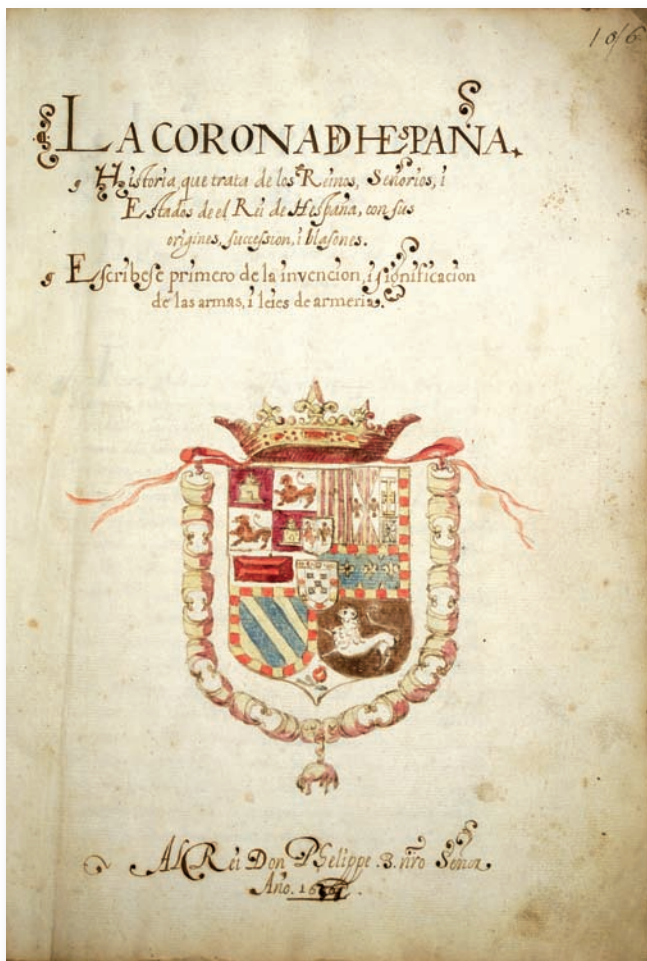 106
LA CORONA DE HESPAÑA.
Historia que trata de los Reinos, Señorios, i
Estados de el Rei de Hespaña, con sus
origines, succession, i blasones.
Escribese primero de la invencion, i significacion
de las armas, i leies de armeria.
Al Rei Don Phelippe .3. nro Señor
Año.